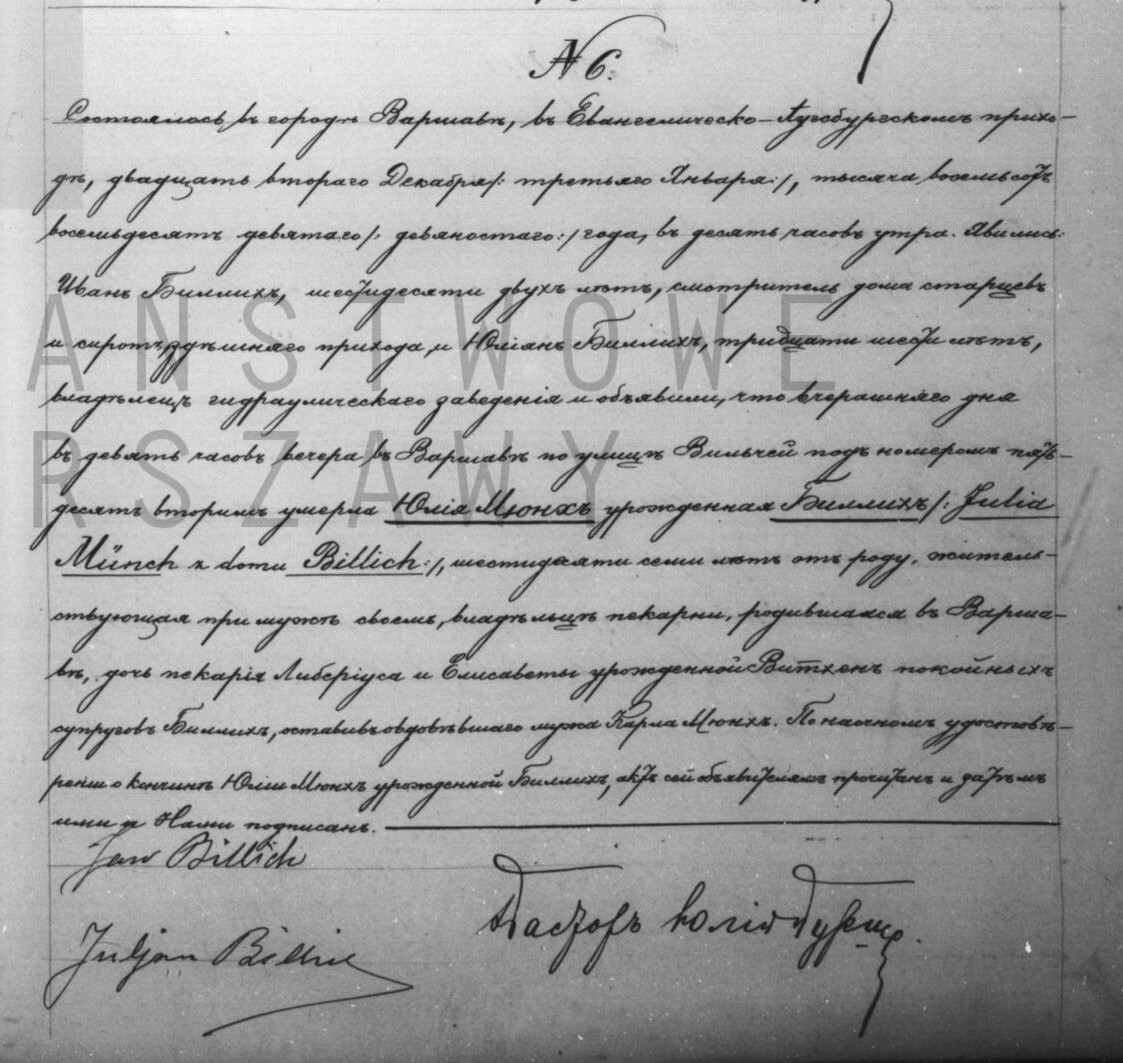 № 6.
Состоялось въ городѣ Варшавѣ, въ Евангелическо-Аугсбургскомъ прихо-
дѣ, двадцать втораго Декабря /: третьяго Января :/, тысяча восемьсотъ
восемьдесятъ девятаго /: девяностаго :/ года, въ десять часовъ утра. Явились:
Иванъ Биллихъ, шестидесяти двухъ лѣтъ, смотритель дома старцевъ
и сиротъ, здѣшняго прихода, и Юліянъ Биллихъ, тридцати шести лѣтъ,
владѣлецъ гидраулическаго заведенія и объявили, что вчерашняго дня
въ девять часовъ вечера въ Варшавѣ по улицѣ Вильчей подъ номеромъ пять-
десятъ вторымъ умерла Юлія Мюнхъ урожденная Биллихъ /: Julia
Münch z domu Billich :/, шестидесяти семи лѣтъ отъ роду, житель-
ствующая при мужѣ своемъ, владѣльцѣ пекарни, родившаяся въ Варша-
вѣ, дочь пекаря Либеріуса и Елисаветы урожденной Витхенъ покойныхъ
супруговъ Биллихъ, оставивъ овдовѣвшаго мужа Карла Мюнхъ. По наочномъ удостовѣ-
реніи о кончинѣ Юліи Мюнхъ урожденной Биллихъ, актъ сей объявителямъ прочитанъ и затѣмъ
ими и Нами подписанъ.
Jan Billich
Пасторъ Юлій Бурше.
Juljan Billich
ANSTWOWE
RSZAWY